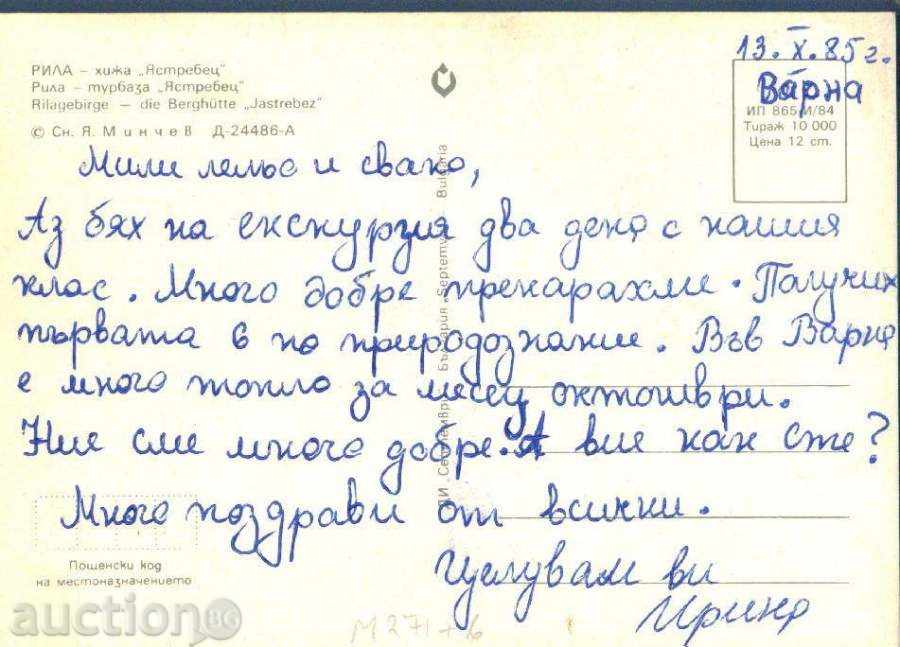 13. X. 85 г.
Варна
РИЛА – хижа „Ястребец"
Рила – турбаза „Ястребец"
Rilagebirge — die Berghütte „Jastrebez"
© Сн. Я. Минчев Д-24486-А
ИП 865 И/84
Тираж 10 000
Цена 12 ст.
Мили лельо и свако,
Аз бях на екскурзия два дена с нашия
клас. Много добре прекарахми. Получих
първата 6 по природознание. Във Варна
е много топло за месец октомври.
Ние сме много добре. А вие как сте?
Много поздрави от всички.
Целувам ви
Ирина
ДИ „Септември" България „Septemvri" Bulgaria
Пощенски код
на местоназначението
auction BG